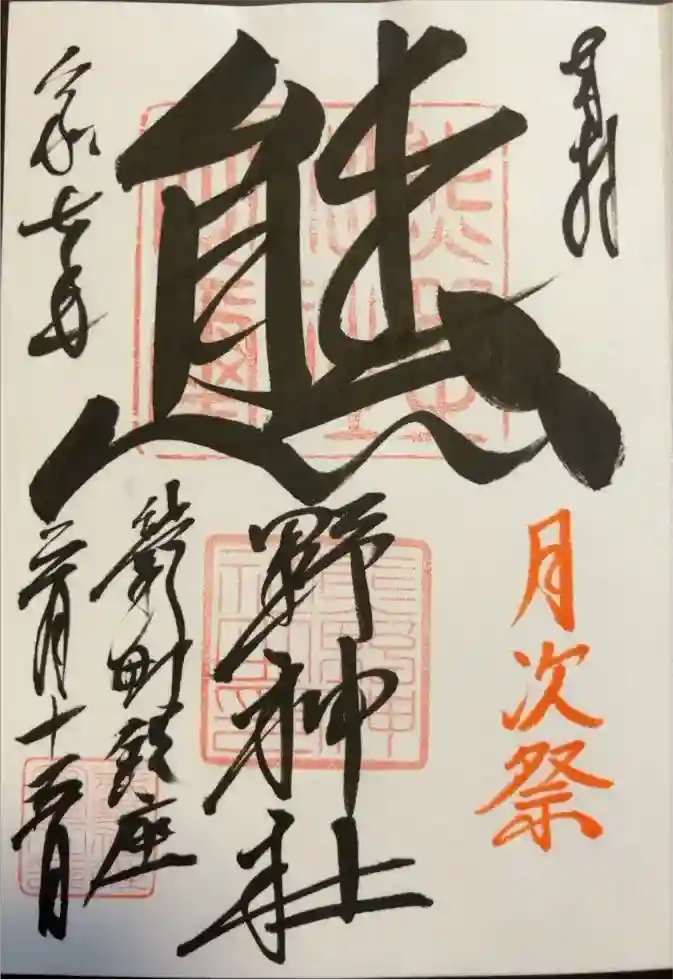 奉拝
月次祭
熊野神社
町鎮座
令和七年
月十五日